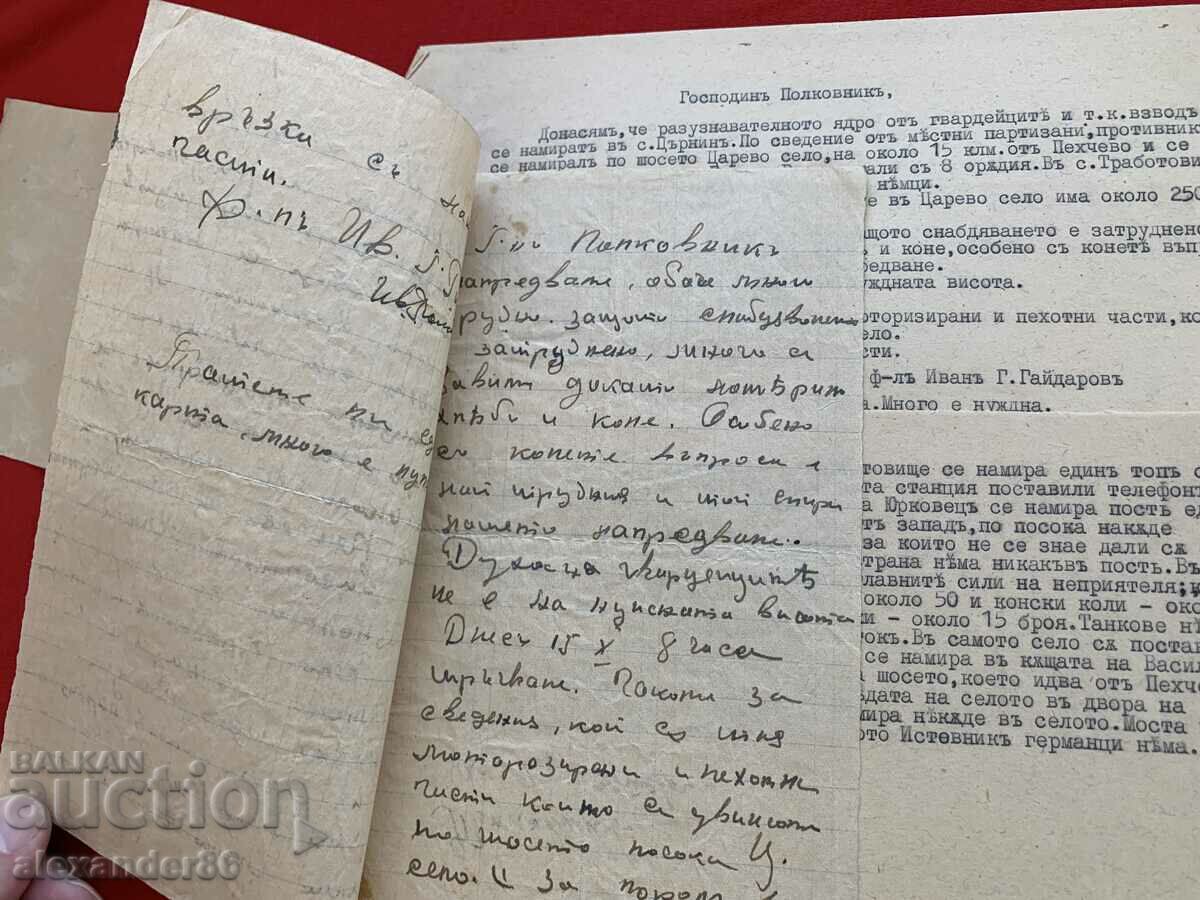 връзки съ на
части.
Ф.лъ Ив. Г.
Пратете ни ед
карта. много е нуж
Г-нъ Полковникъ
Напредваме, обаче много
трудно. защото снабдяването
затруднено, много се
бавим докато намѣрим
хлѣб и коне. Особено
с конете въпроса е
най трудния и той спира
нашето напредване.
Духа на гвардейцитѣ
не е на нуждната висота
Днес 15 X 8 часа
тръгваме. Чакаме за
сведения, кой са тия
моторозирани и пехотни
части които се движат
по шосето посока Ц.
село. И за
Господинъ Полковникъ,
Донасямъ,че разузнавателното ядро отъ гвардейцитѣ и т.к.взводъ
се намиратъ въ с.Църнин.По сведение отъ мѣстни партизани,противник
се намиралъ по шосето Царево село,на около 15 клм.отъ Пехчево и се
рали съ 8 орѫдия.Въ с.Тработови
нѣмци.
е въ Царево село има около 250
ащото снабдяването е затруднено
и коне,особено съ конетѣ въпр
редване.
уждната висота.
оторизирани и пехотни части,ко
ело.
сти.
ф-лъ Иванъ Г.Гайдаровъ
а.Много е нуждна.
товище се намира единъ топъ с
та станция поставили телефонъ
а Юрковецъ се намира постъ ед
тъ западъ,по посока накѫде
за които не се знае дали сѫ
трана нѣма никакъвъ постъ.Въ
лавнитѣ сили на неприятеля;
около 50 и конски коли - око
и - около 15 броя.Танкове нѣ
ток.Въ самото село сѫ постав
се намира въ кѫщата на Васил
а шосето,което идва отъ Пехче
здата на селото въ двора на
мира нѣкѫде въ селото.Моста
ото Истевник германци нѣма.
BALKAN
auction
alexander86